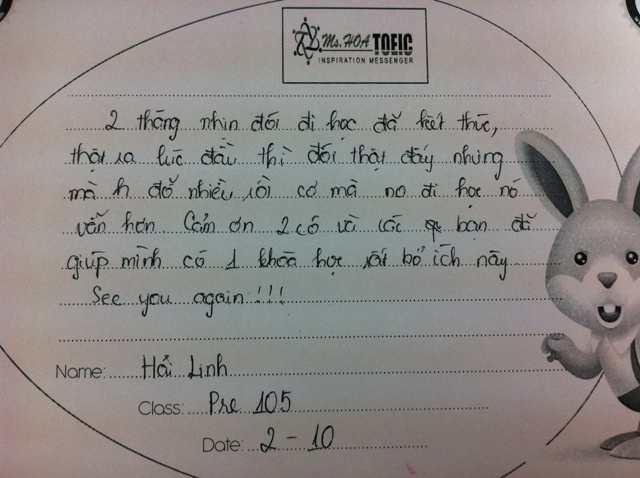 Ms. HOA TOEIC
INSPIRATION MESSENGER
2 tháng nhịn đói đi học đã kết thúc,
thật ra lúc đầu thì đói thật đấy nhưng
mà h đỡ nhiều rồi cơ mà no đi học nó
vẫn hơn Cảm ơn 2 cô và các bạn đã
giúp mình có 1 khóa học rất bổ ích này
See you again !!!
Name: Hải Linh
Class: Pre 105
Date: 2 - 10